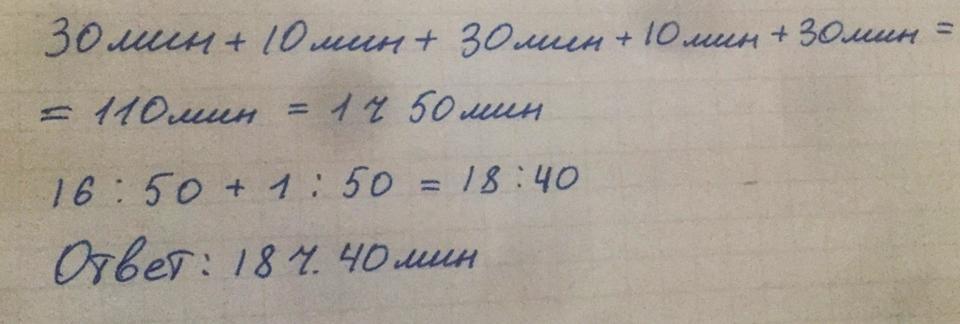 30мин + 10мин + 30мин + 10мин + 30мин =
= 110мин = 1 ч 50мин
16 : 50 + 1 : 50 = 18 : 40
Ответ: 18 ч. 40мин